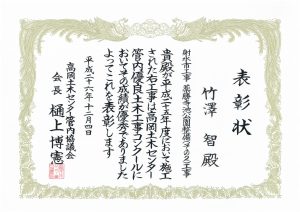 表彰状
竹澤 智 殿
射水市工事 薬勝寺池公園整備その2工事
貴殿が平成二十五年度において施工
された右工事は高岡土木センター
管内優良土木工事コンクールに
おいてその成績が優秀でありました
よってこれを表彰します
平成二十六年十二月四日
高岡土木センター管内協議会
会長 樋上博憲